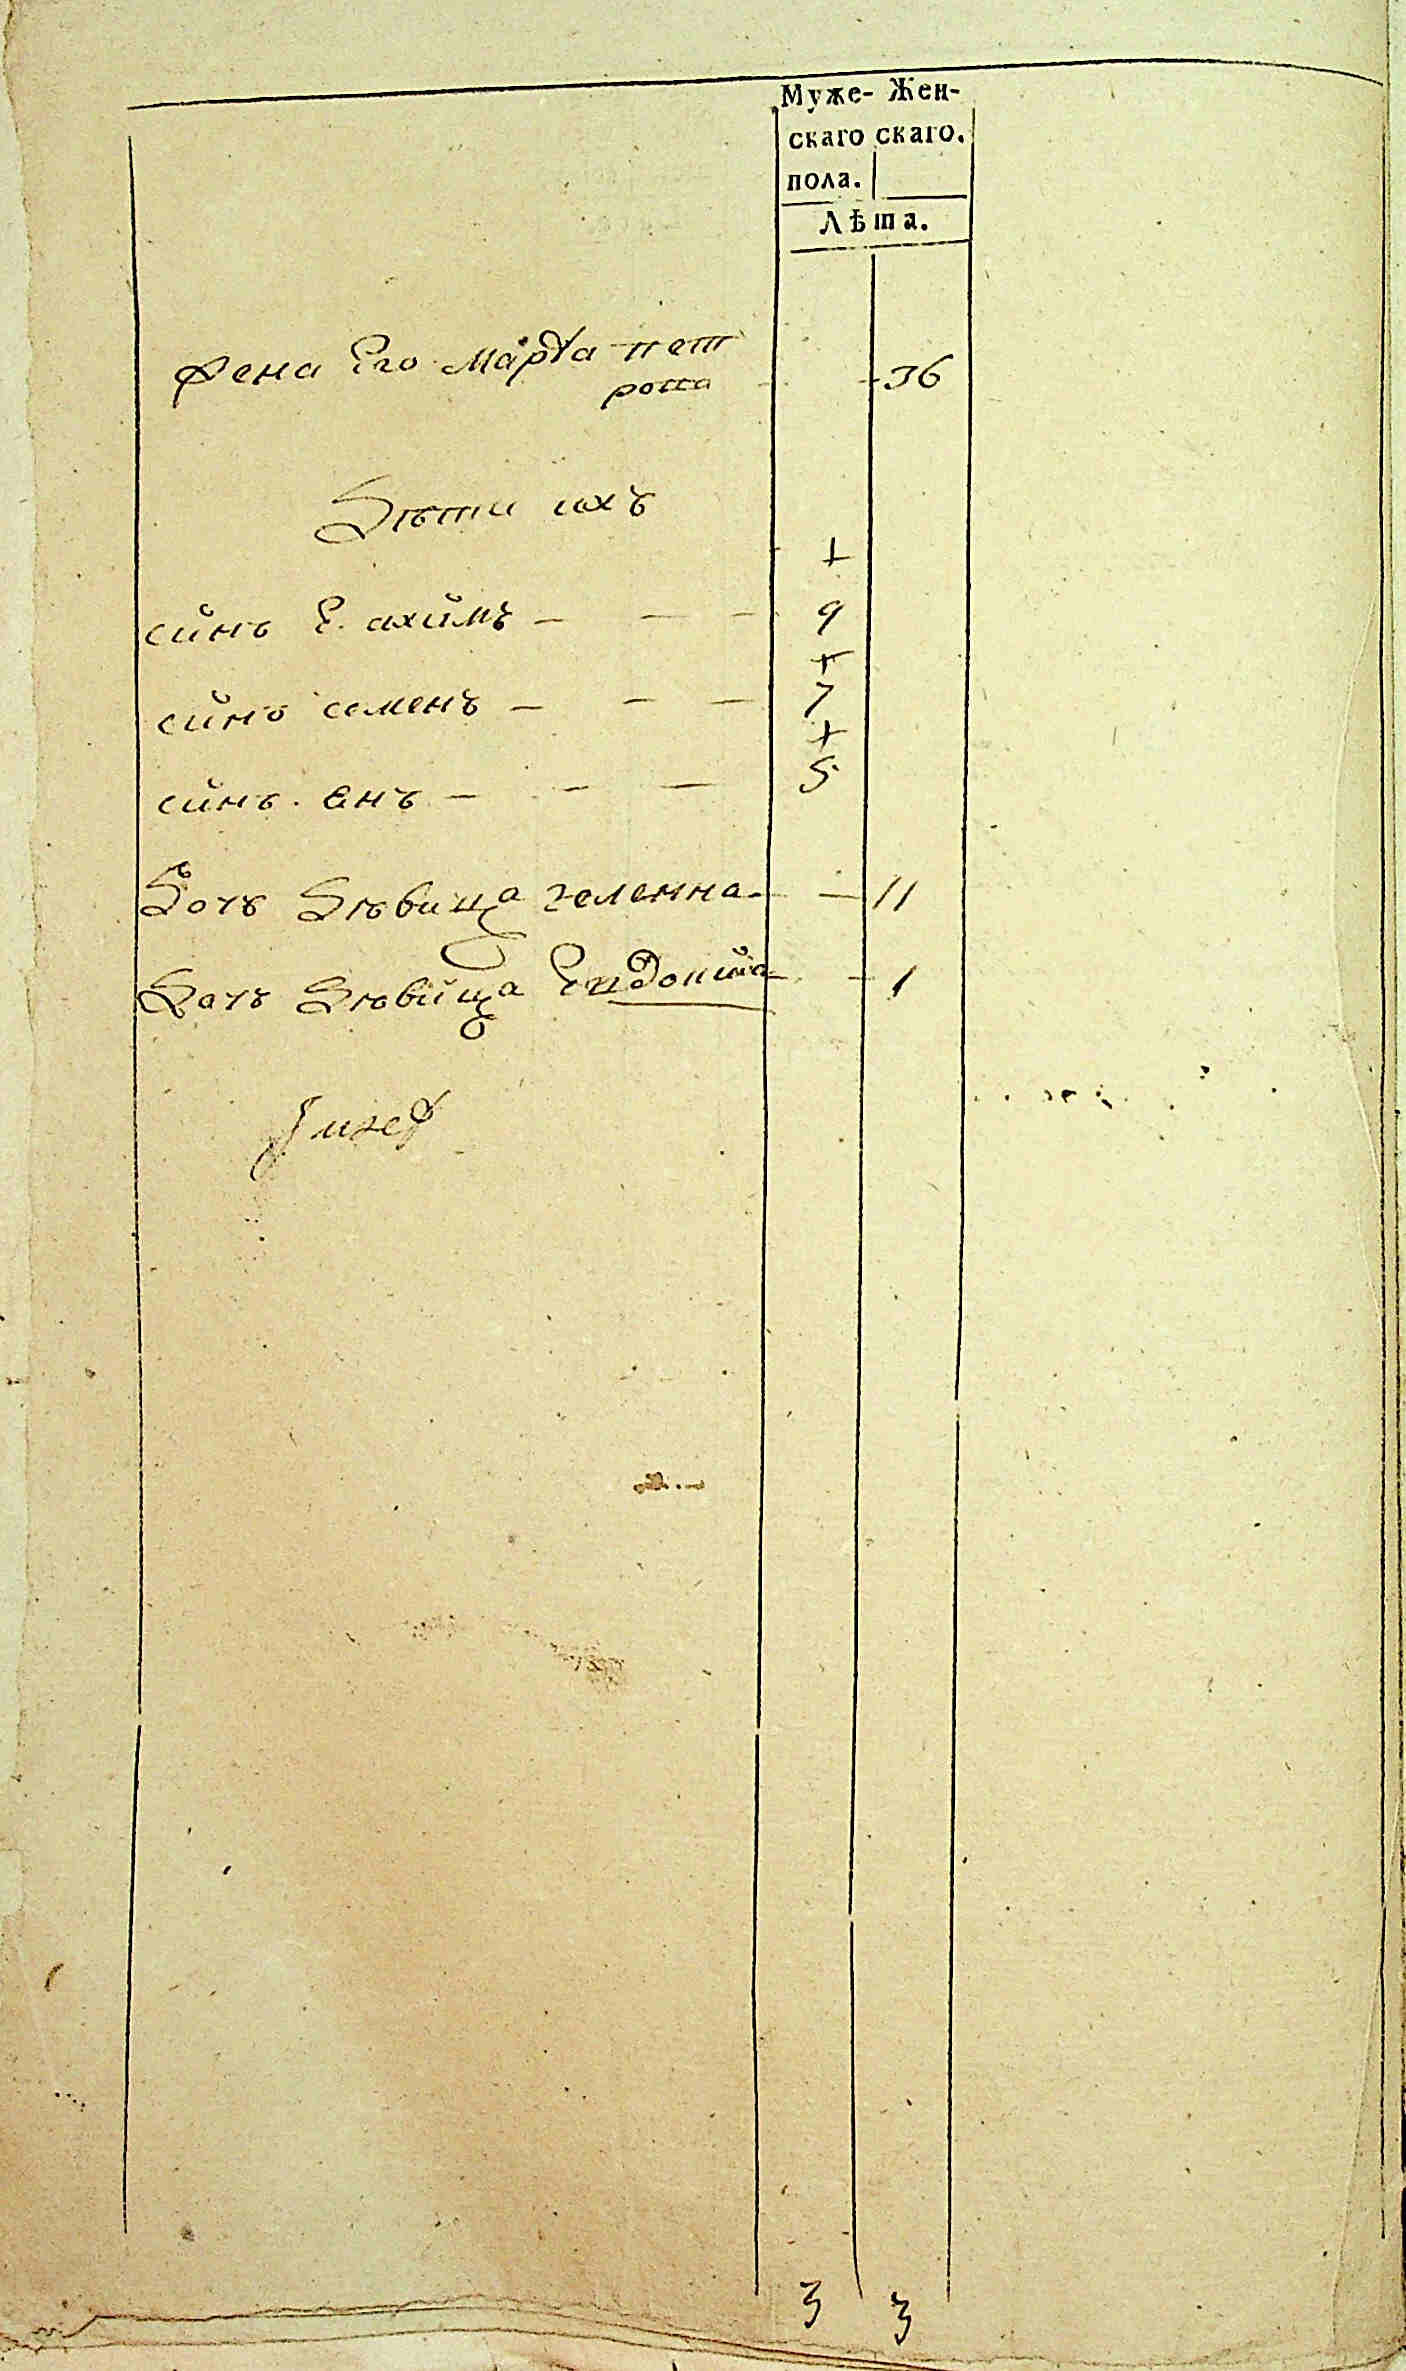 Муже- Жен-
скаго скаго.
пола.
Лѣта.
жена Его марѳа пет
рова 36
Дѣти ихъ
+
синъ Е. ахимъ — — — 9
+
синъ семенъ — — — 7
+
синъ. анъ — — — 5
Дочь Дѣвица геленна — 11
Дочь Дѣвица Евдокия — 1
3 3